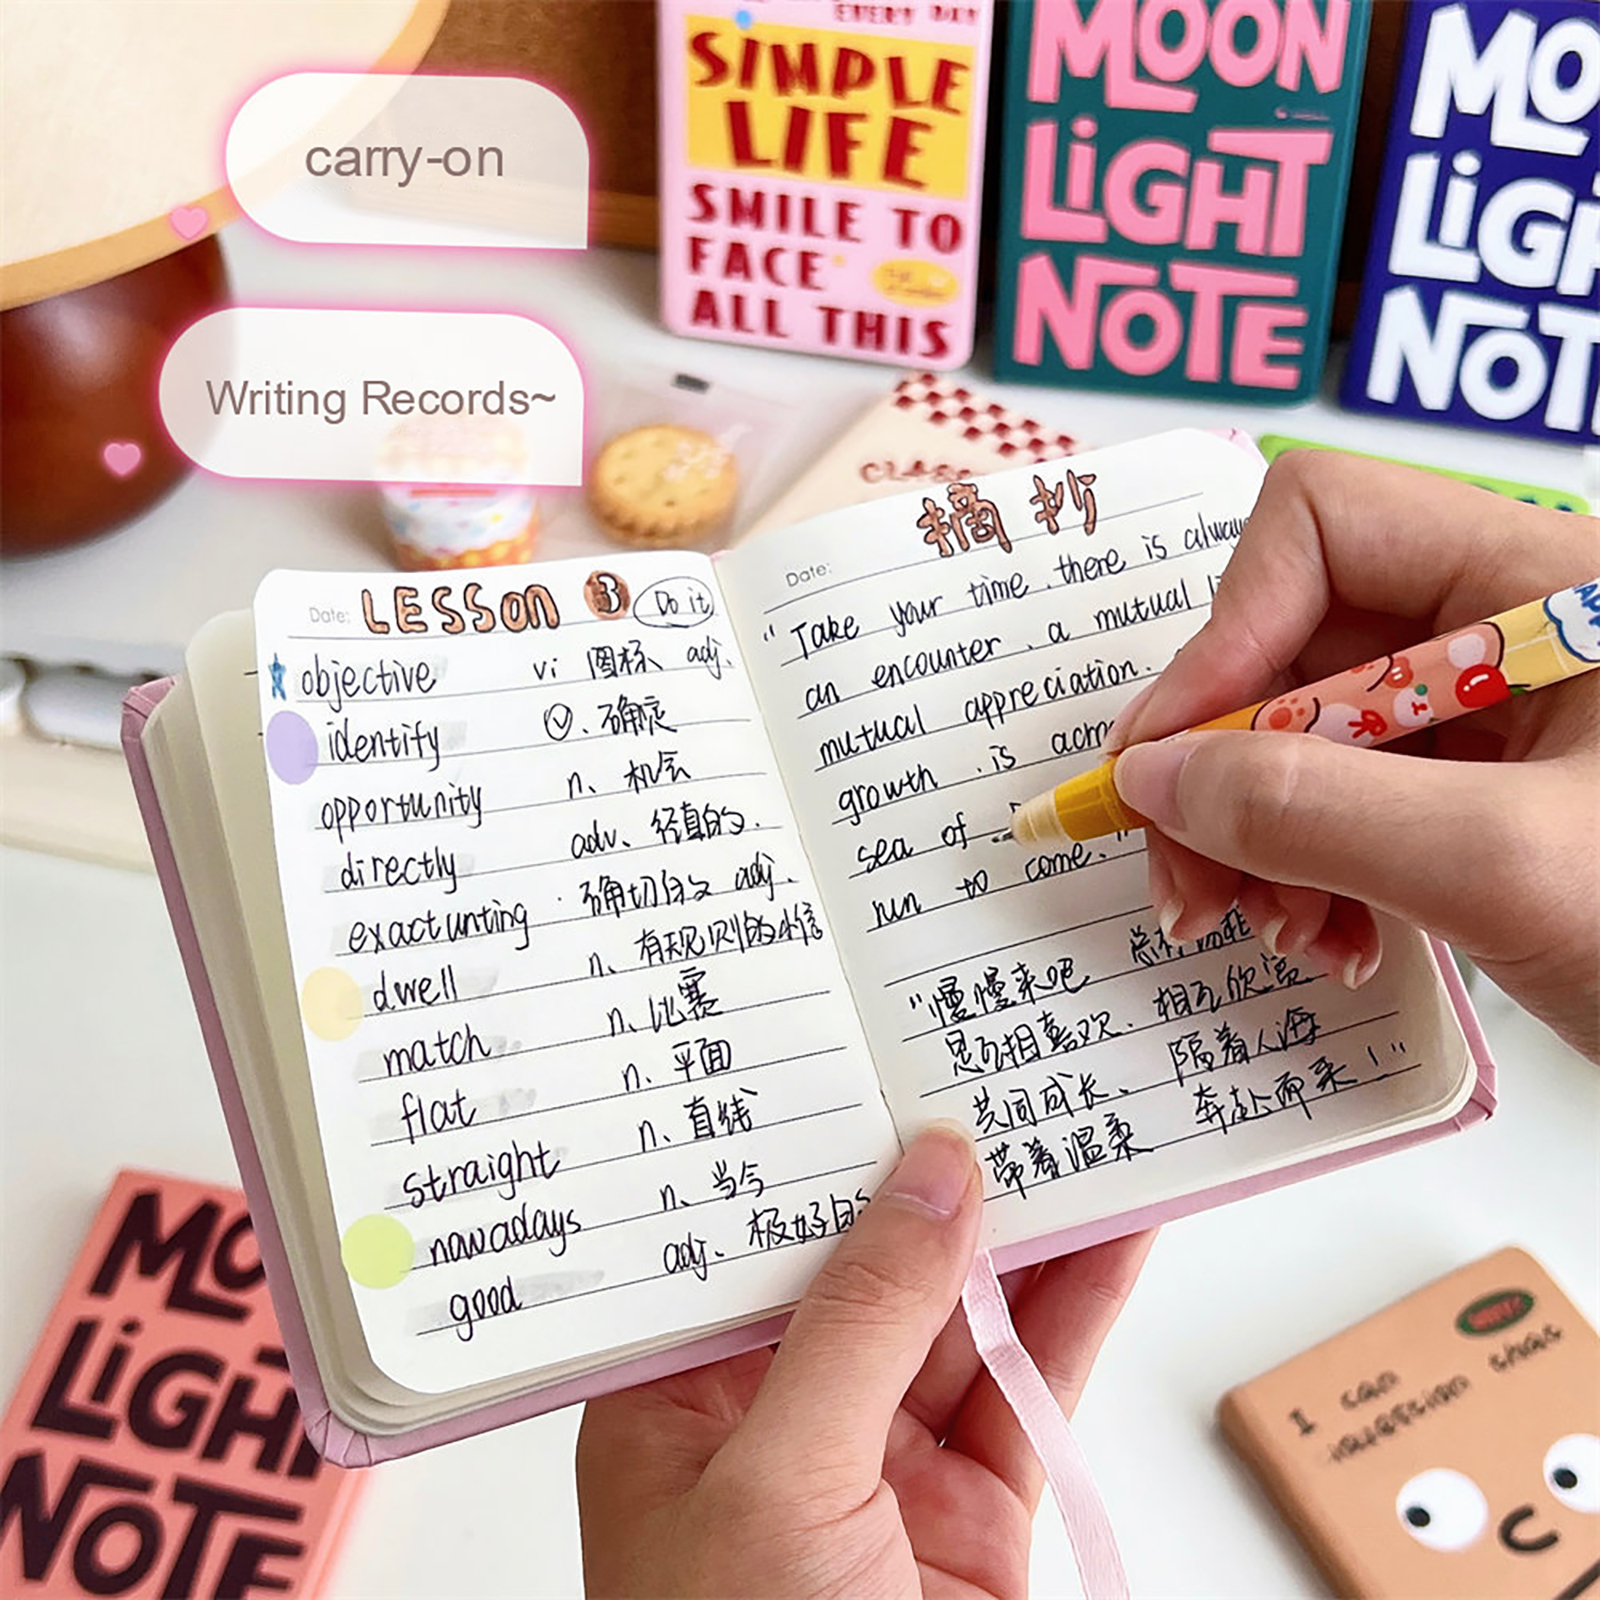 carry-on
Writing Records~
EVERY DAY
SIMPLE
LIFE
SMILE TO
FACE
ALL THIS
MOON
LiGHT
NOTE
MO
LiGH
NOT
CLASS
Date: LESSON 3 Do it
objective vi 图标 adj.
identify v. 确定
opportunity n. 机会
directly adv. 径直的.
exactunting 确切的 adj.
dwell n. 有规则的
match n. 比赛
flat n. 平面
straight n. 直线
nowadays n. 当今
good adj. 极好的
Date: 摘抄
"Take your time . there is always
an encounter . a mutual
mutual appreciation .
growth . is
sea of
run to come."
"慢慢来吧
相喜欢. 相互欣赏
共同成长、 隔着人海
带着温柔 奔赴而来！"
MO
LiGH
NOTE
I can